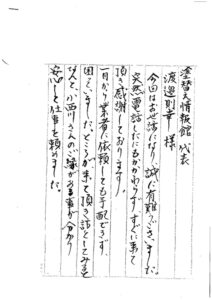 塗替え情報館 代表
渡邉則幸 様
今回はお世話になり、誠に有難うございました。
突然電話したにもかかわらず、すぐに来て
頂き感謝しております。
一日から業者に依頼しても手配できず
困っていました。ところが来て頂き話をしてみると
なんと、小西川さんのご縁がある事が分かり
安心して仕事を頼めました。